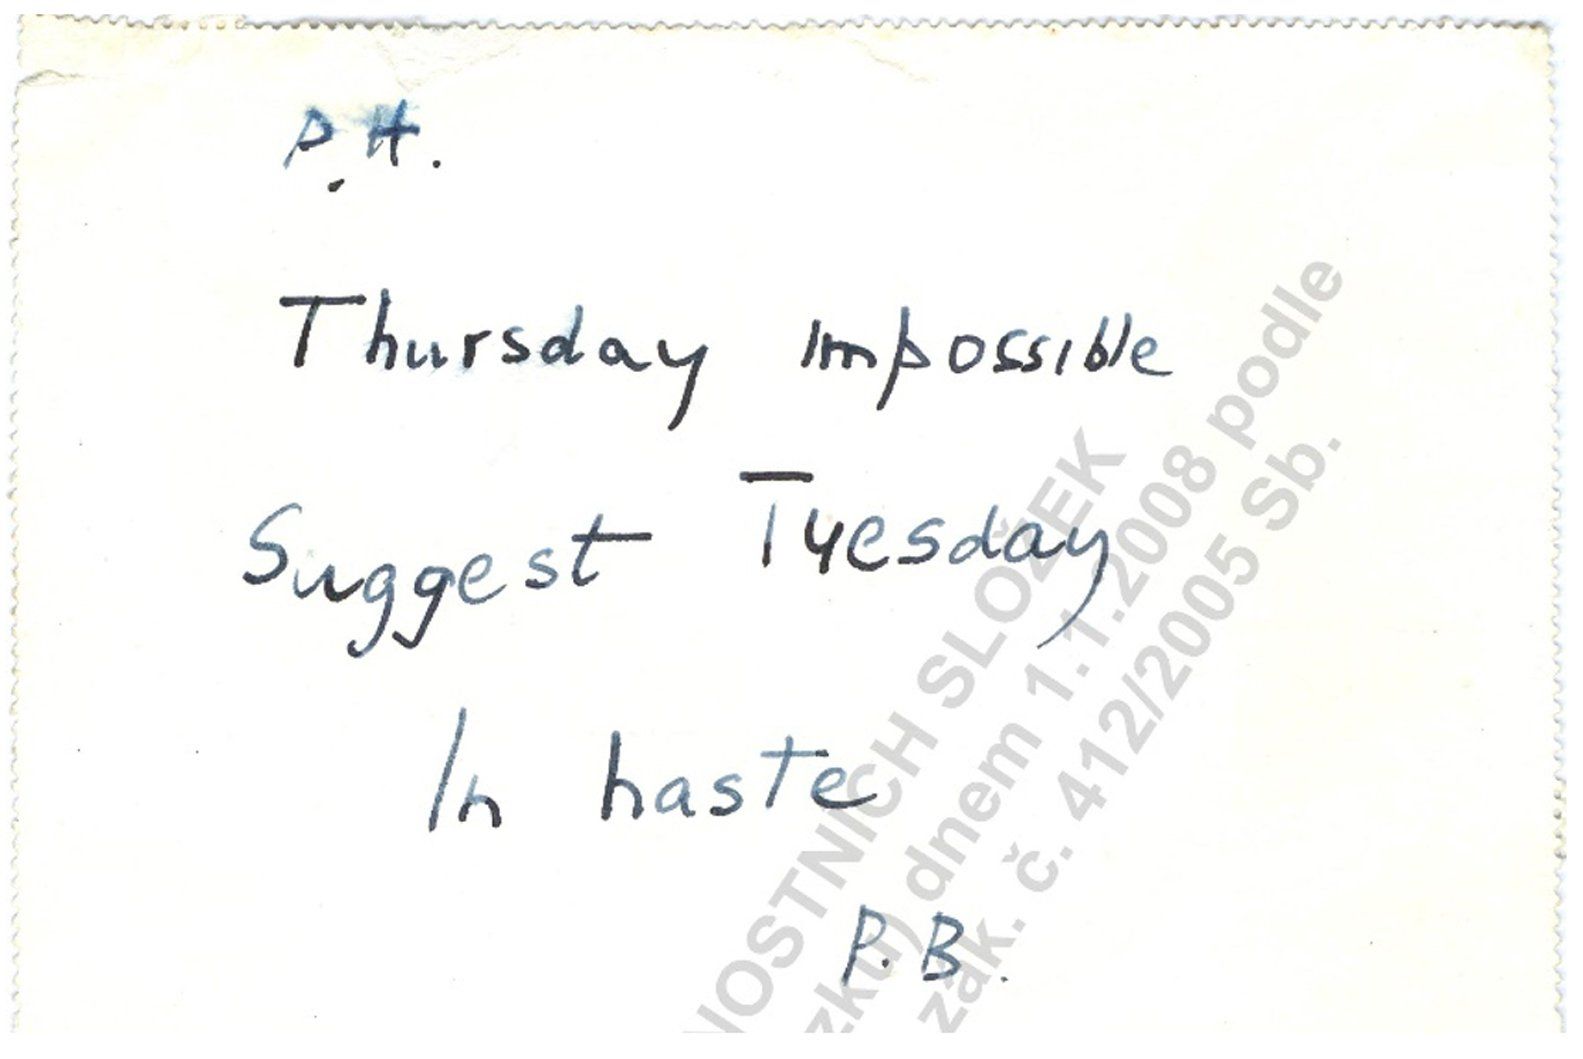 P.H.
Thursday impossible
Suggest Tuesday
In haste
P.B.
NOSTNÍCH SLOŽEK
zku) dnem 1.1.2008 podle
zák. č. 412/2005 Sb.